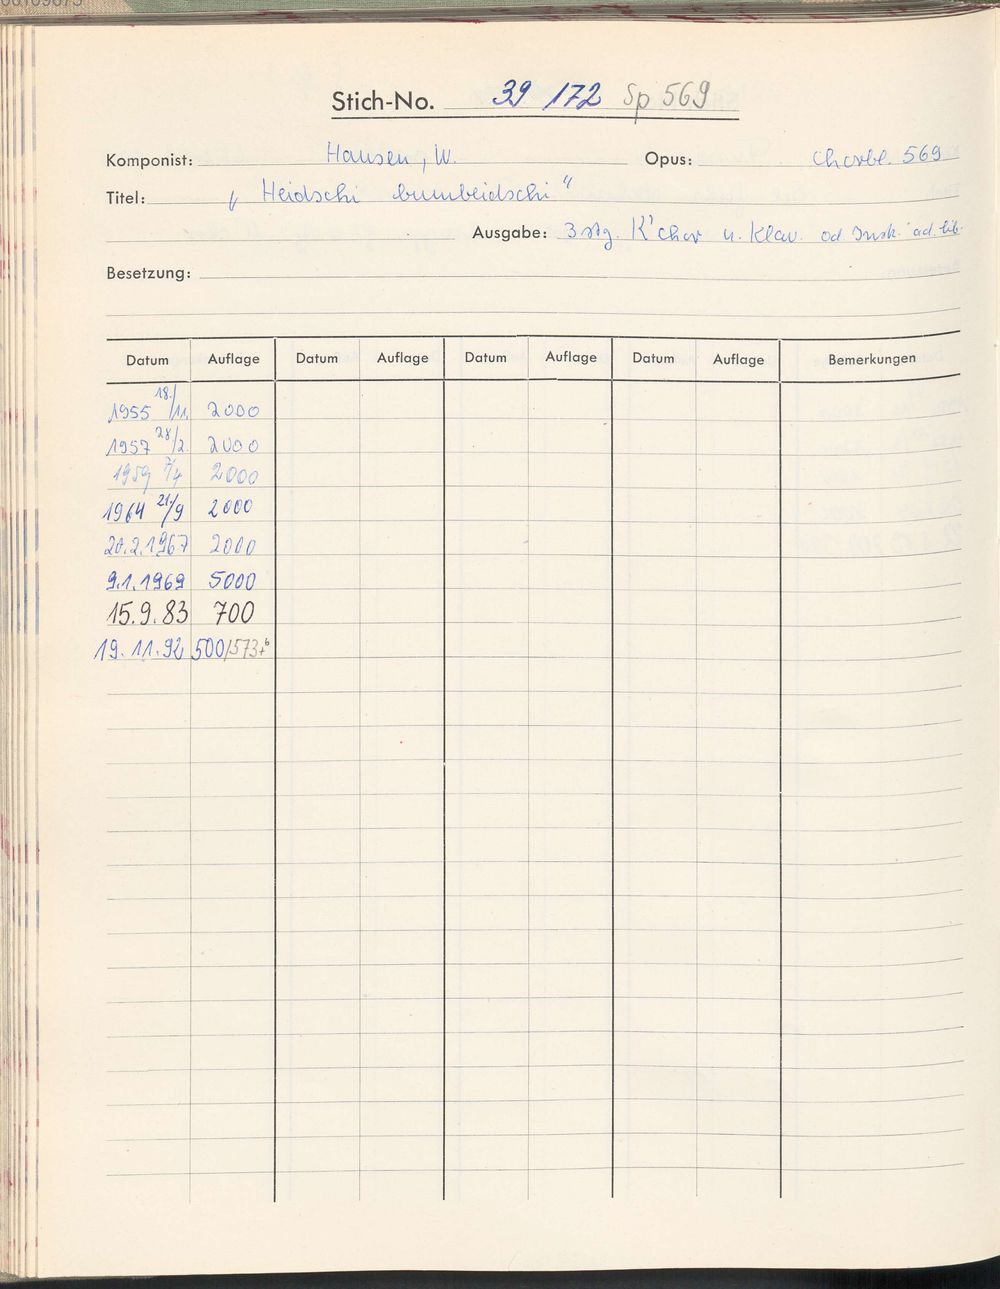 Stich-No. 39 172 Sp 569
Komponist: Hansen, W. Opus: Chorbl. 569
Titel: „Heidschi bumbeidschi“
Ausgabe: 3 stg. K'chor u. Klav. od Instr. ad. lib.
Besetzung:
Datum Auflage Datum Auflage Datum Auflage Datum Auflage Bemerkungen
1955 18./11. 2000
1957 28/2. 2000
1959 7/4 2000
1964 21/9 2000
20.2.1967 2000
9.1.1969 5000
15.9.83 700
19.11.92 500/573